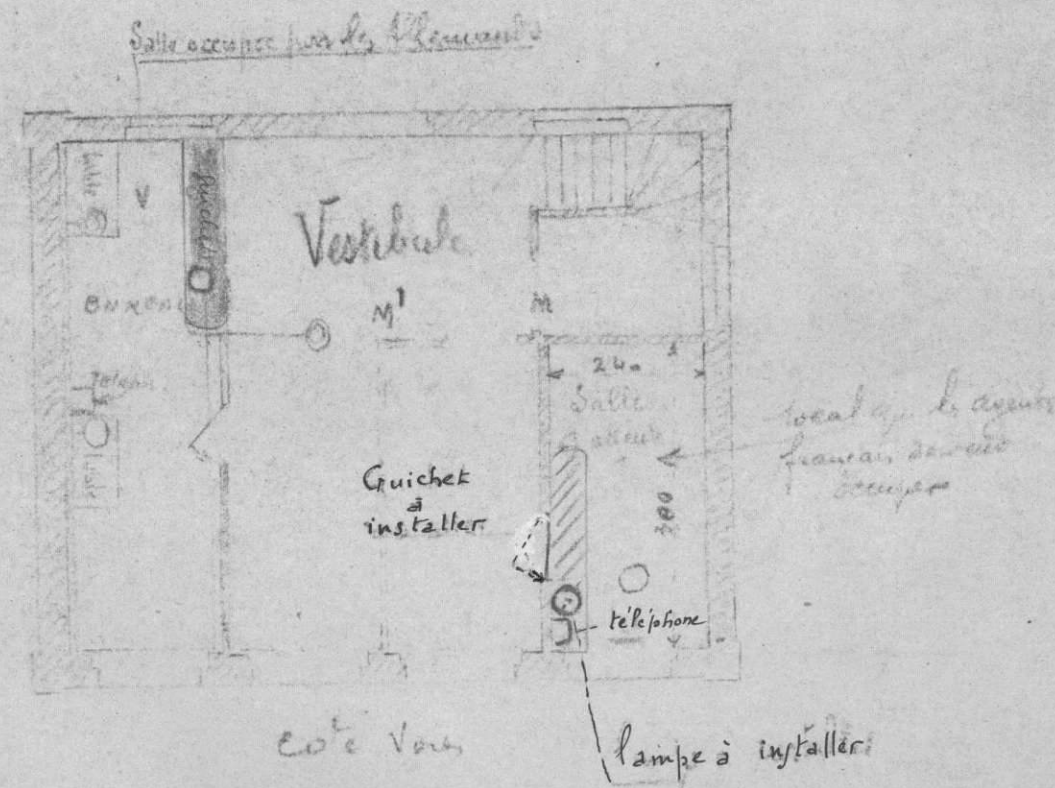 Salle occupée par les Allemands
table
guichets
Vestibule
V
BUREAU
M¹
M
240
Salle
local que les agents
français devront
occuper
Guichet
à
installer
300
téléphone
Coté Voies
lampe à installer